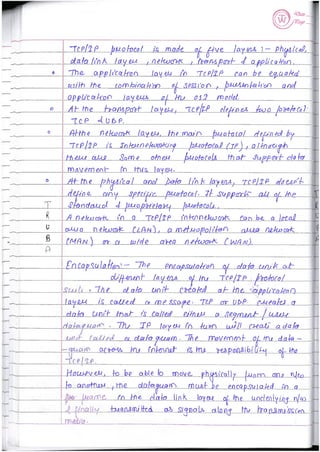 TCP/IP protocol is made of five layers :- Physical,
data link layer, network, transport & application.
The application layer in TCP/IP can be equated
with the combination of session, presentation and
application layers of the OSI model
At the transport layer, TCP/IP defines two protocol
TCP & UDP.
At the network layer, the main protocol defined by
TCP/IP is Internetworking protocol (IP), although
there are some other protocols that support data
movement in this layer.
At the physical and Data link layers, TCP/IP doesn't
define any specific protocol. It supports all of the
standard & proprietary protocols.
A network in a TCP/IP internetwork can be a local
area network (LAN), a metropolitan area network
(MAN) or a wide area network (WAN).
Encapsulation :- The encapsulation of data units at
different layers of the TCP/IP protocol
suit :- The data unit created at the application
layer is called a message. TCP or UDP creates a
data unit that is called either a segment / user
datagram. The IP layer in turn will create a data
unit called a datagram. The movement of the data-
gram across the Internet is the responsibility of the
TCP/IP.
However, to be able to move physically from one n/w
to another, the datagram must be encapsulated in a
frame in the data link layer of the underlying n/w
& finally transmitted as signals along the transmission
media.
T
R
U
B
A